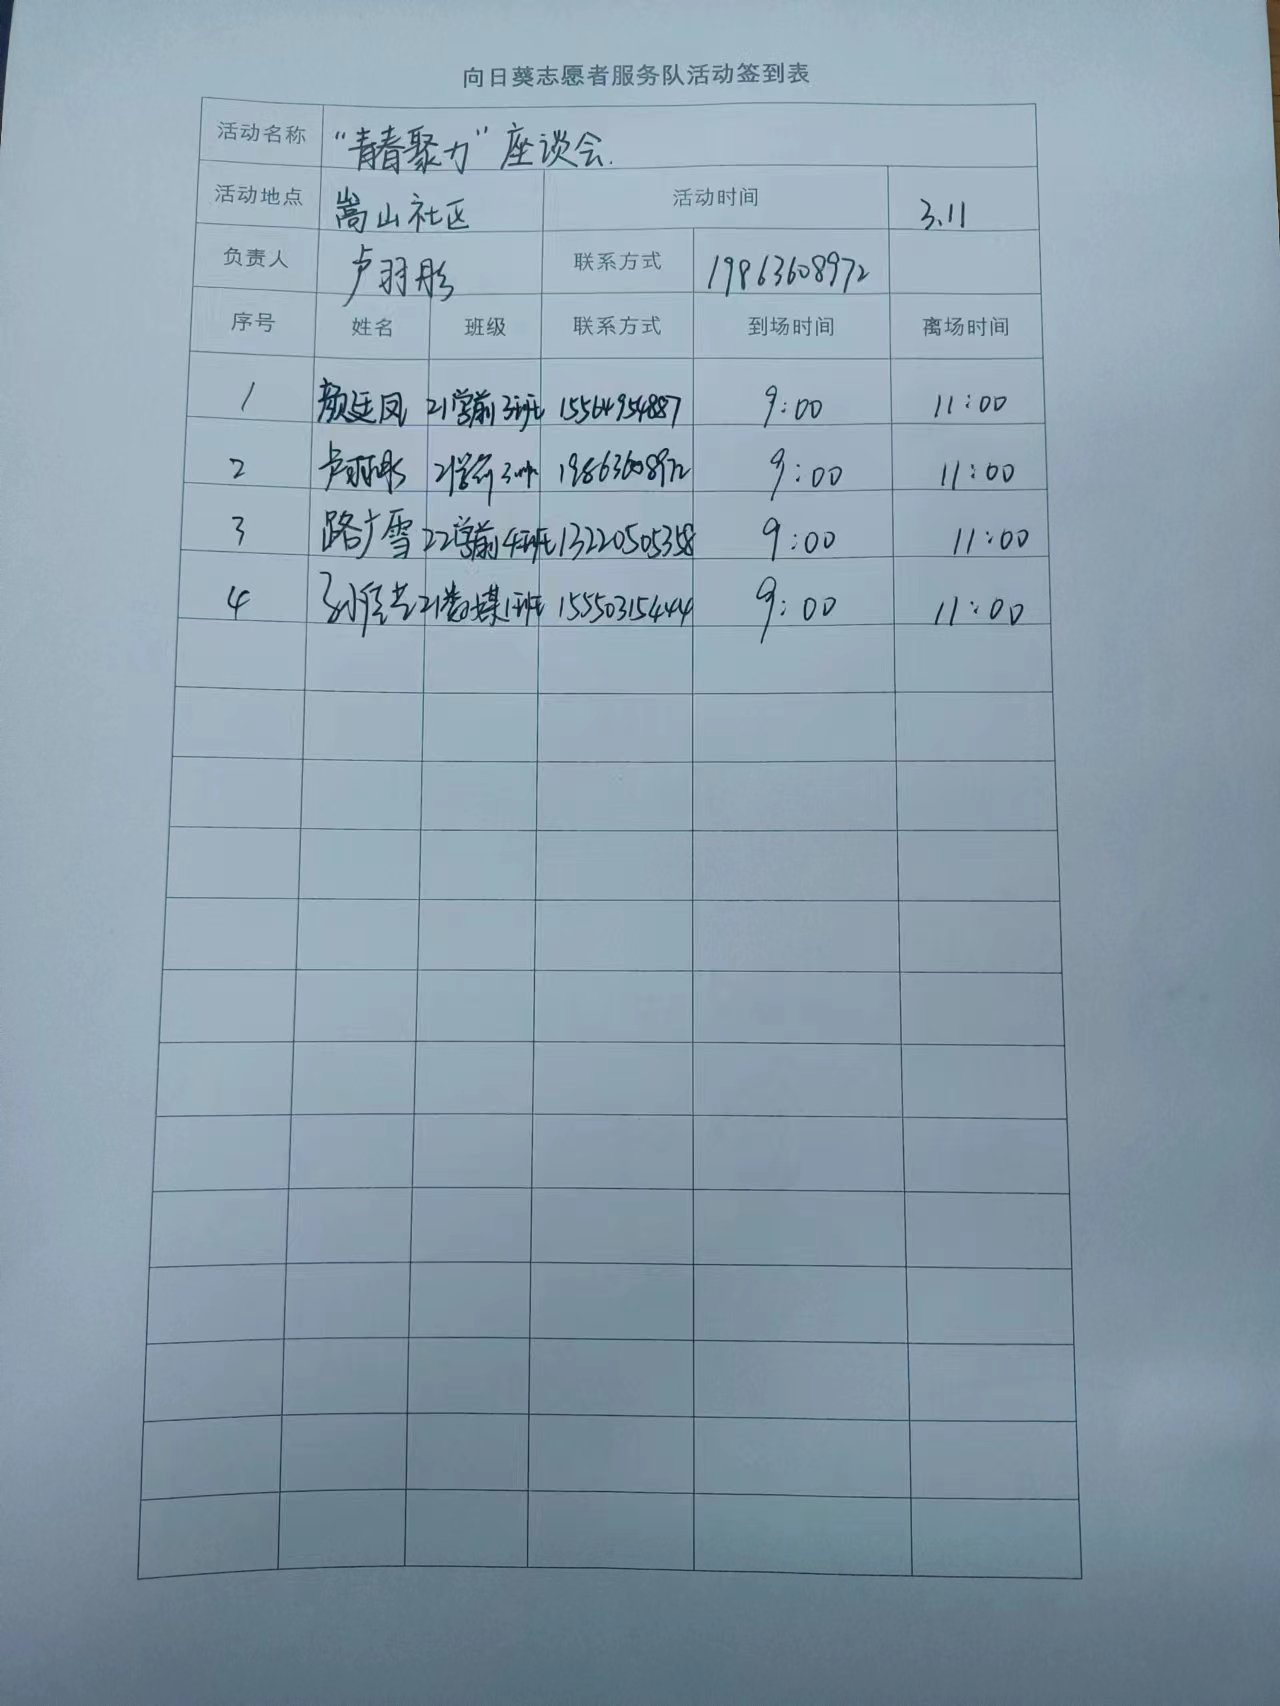 向日葵志愿者服务队活动签到表
活动名称 “青春聚力”座谈会.
活动地点 嵩山社区 活动时间 3.11
负责人 卢羽彤 联系方式 19863608972
序号 姓名 班级 联系方式 到场时间 离场时间
1 颜廷凤 21学前3班 15564954887 9:00 11:00
2 卢羽彤 21学前3班 19863608972 9:00 11:00
3 路广雪 22学前4班 13220505358 9:00 11:00
4 孙佳艺 21数媒1班 15550315444 9:00 11:00